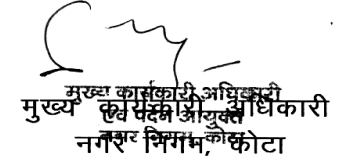 मुख्य कार्यकारी अधिकारी
एवं पदेन आयुक्त
नगर निगम, कोटा
मुख्य कार्यकारी, अधिकारी
नगर निगम, कोटा